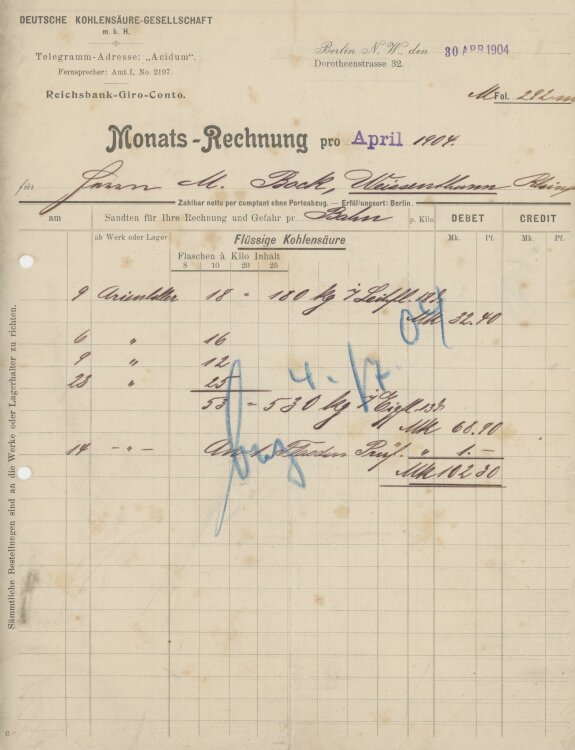 DEUTSCHE KOHLENSÄURE-GESELLSCHAFT
m. b. H.
Telegramm-Adresse: „Acidum".
Fernsprecher: Amt I, No. 2197.
Reichsbank-Giro-Conto.
Berlin N. W., den 30 APR 1904
Dorotheenstrasse 32.
Fol. 292
Monats-Rechnung pro April 1904.
für Herrn M. Bock,
Zahlbar netto per comptant ohne Portoabzug. — Erfüllungsort: Berlin.
am Sandten für Ihre Rechnung und Gefahr pr. Bahn p. Kilo DEBET CREDIT
ab Werk oder Lager Flüssige Kohlensäure Mk. Pf. Mk. Pf.
Flaschen à Kilo Inhalt
8 10 20 25
9 18 = 180 kg
Mk 32.40
6 " 16
9 " 12
23 " 25
53 = 530 kg
Mk 68.90
14 - " - " 1.-
Mk 102 30
4. 17. 04
Sämmtliche Bestellungen sind an die Werke oder Lagerhalter zu richten.